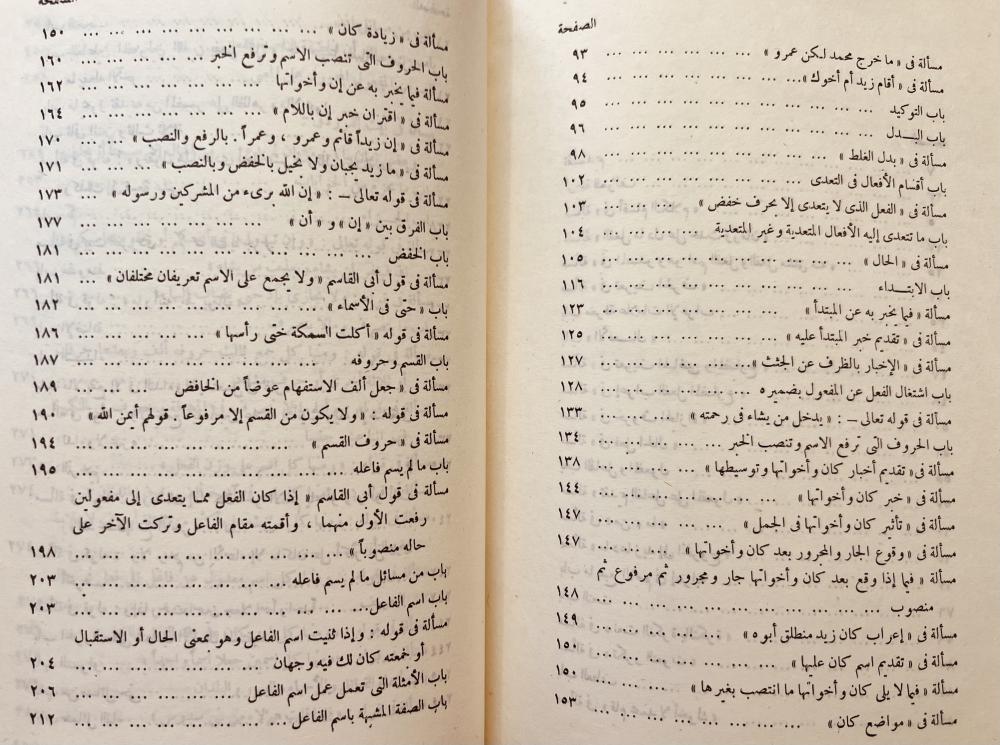 الصفحة
مسألة فى « ما خرج محمد لكن عمرو » ... ... ... ... ... ٩٣
مسألة فى « أقام زيد أم أخوك » ... ... ... ... ... ... ٩٤
باب التوكيد ... ... ... ... ... ... ... ... ... ٩٥
باب البــدل ... ... ... ... ... ... ... ... ... ٩٦
مسألة فى « بدل الغلط » ... ... ... ... ... ... ... ٩٨
باب أقسام الأفعال فى التعدى ... ... ... ... ... ... ١٠٢
مسألة فى « الفعل الذى لا يتعدى إلا بحرف خفض » ... ... ... ١٠٣
باب ما تتعدى إليه الأفعال المتعدية وغير المتعدية ... ... ... ١٠٤
مسألة فى « الحال » ... ... ... ... ... ... ... ١٠٥
باب الابتــداء ... ... ... ... ... ... ... ١١٦
مسألة « فيما يخبر به عن المبتدأ » ... ... ... ... ١٢٣
مسألة فى « تقديم خبر المبتدأ عليه » ... ... ... ... ١٢٥
مسألة فى « الإخبار بالظرف عن الجثث » ... ... ... ... ١٢٧
باب اشتغال الفعل عن المفعول بضميره ... ... ... ... ١٢٨
مسألة فى قوله تعالى – : « يدخل من يشاء فى رحمته » ... ... ١٣٣
باب الحروف التى ترفع الاسم وتنصب الخبر ... ... ... ١٣٤
مسألة فى « تقديم أخبار كان وأخواتها وتوسيطها » ... ... ... ١٣٨
مسألة فى « خبر كان وأخواتها » ... ... ... ... ... ١٤٤
مسألة فى « تأثير كان وأخواتها فى الجمل » ... ... ... ... ١٤٧
مسألة فى « وقوع الجار والمجرور بعد كان وأخواتها » ... ... ... ١٤٧
مسألة « فيما إذا وقع بعد كان وأخواتها جار ومجرور ثم مرفوع ثم
منصوب ... ... ... ... ... ... ... ... ١٤٨
مسألة فى « إعراب كان زيد منطلق أبوه » ... ... ... ... ١٤٩
مسألة فى « تقديم اسم كان عليها » ... ... ... ... ... ١٥٠
مسألة « فيما لا يلى كان وأخواتها ما انتصب بغيرها » ... ... ... ١٥٠
مسألة فى « مواضع كان » ... ... ... ... ... ... ١٥٣
الصفحة
مسألة فى « زيادة كان » ... ... ... ... ... ... ١٥٠
باب الحروف التى تنصب الاسم وترفع الخبر ... ... ... ١٦٠
مسألة فيما يخبر به عن إن وأخواتها ... ... ... ... ١٦٢
مسألة فى « اقتران خبر إن باللام » ... ... ... ... ١٦٤
مسألة فى « إن زيداً قائم وعمرو ، وعمراً . بالرفع والنصب » ... ... ١٧٠
مسألة فى « ما زيد بجبان ولا بخيل بالخفض وبالنصب » ... ... ... ١٧١
مسألة فى قوله تعالى – : « إن الله برىء من المشركين ورسوله » ... ... ١٧٣
باب الفرق بين « إن » و « أن » ... ... ... ... ... ١٧٧
باب الخفض ... ... ... ... ... ... ... ١٨١
مسألة فى قول أبى القاسم « ولا يجمع على الاسم تعريفان مختلفان » ... ١٨١
باب « حتى فى الأسماء » ... ... ... ... ... ... ١٨٢
مسألة فى قوله « أكلت السمكة حتى رأسها » ... ... ... ١٨٦
باب القسم وحروفه ... ... ... ... ... ... ١٨٧
مسألة فى « جعل ألف الاستفهام عوضاً من الخافض ... ... ... ١٨٩
مسألة فى قوله : « ولا يكون من القسم إلا مرفوعاً . قولهم أيمن الله » ١٩٠
مسألة فى « حروف القسم » ... ... ... ... ... ١٩٤
باب ما لم يسم فاعله ... ... ... ... ... ... ١٩٥
مسألة فى قول أبى القاسم « إذا كان الفعل مما يتعدى إلى مفعولين
رفعت الأول منهما ، وأقمته مقام الفاعل وتركت الآخر على
حاله منصوباً » ... ... ... ... ... ... ... ١٩٨
باب من مسائل ما لم يسم فاعله ... ... ... ... ٢٠٣
باب اسم الفاعل ... ... ... ... ... ... ... ٢٠٣
مسألة فى قوله : وإذا ثنيت اسم الفاعل وهو بمعنى الحال أو الاستقبال
أو جمعته كان لك فيه وجهان ... ... ... ... ... ٢٠٤
باب الأمثلة التى تعمل عمل اسم الفاعل ... ... ... ... ٢٠٦
باب الصفة المشبهة باسم الفاعل ... ... ... ... ٢١٢